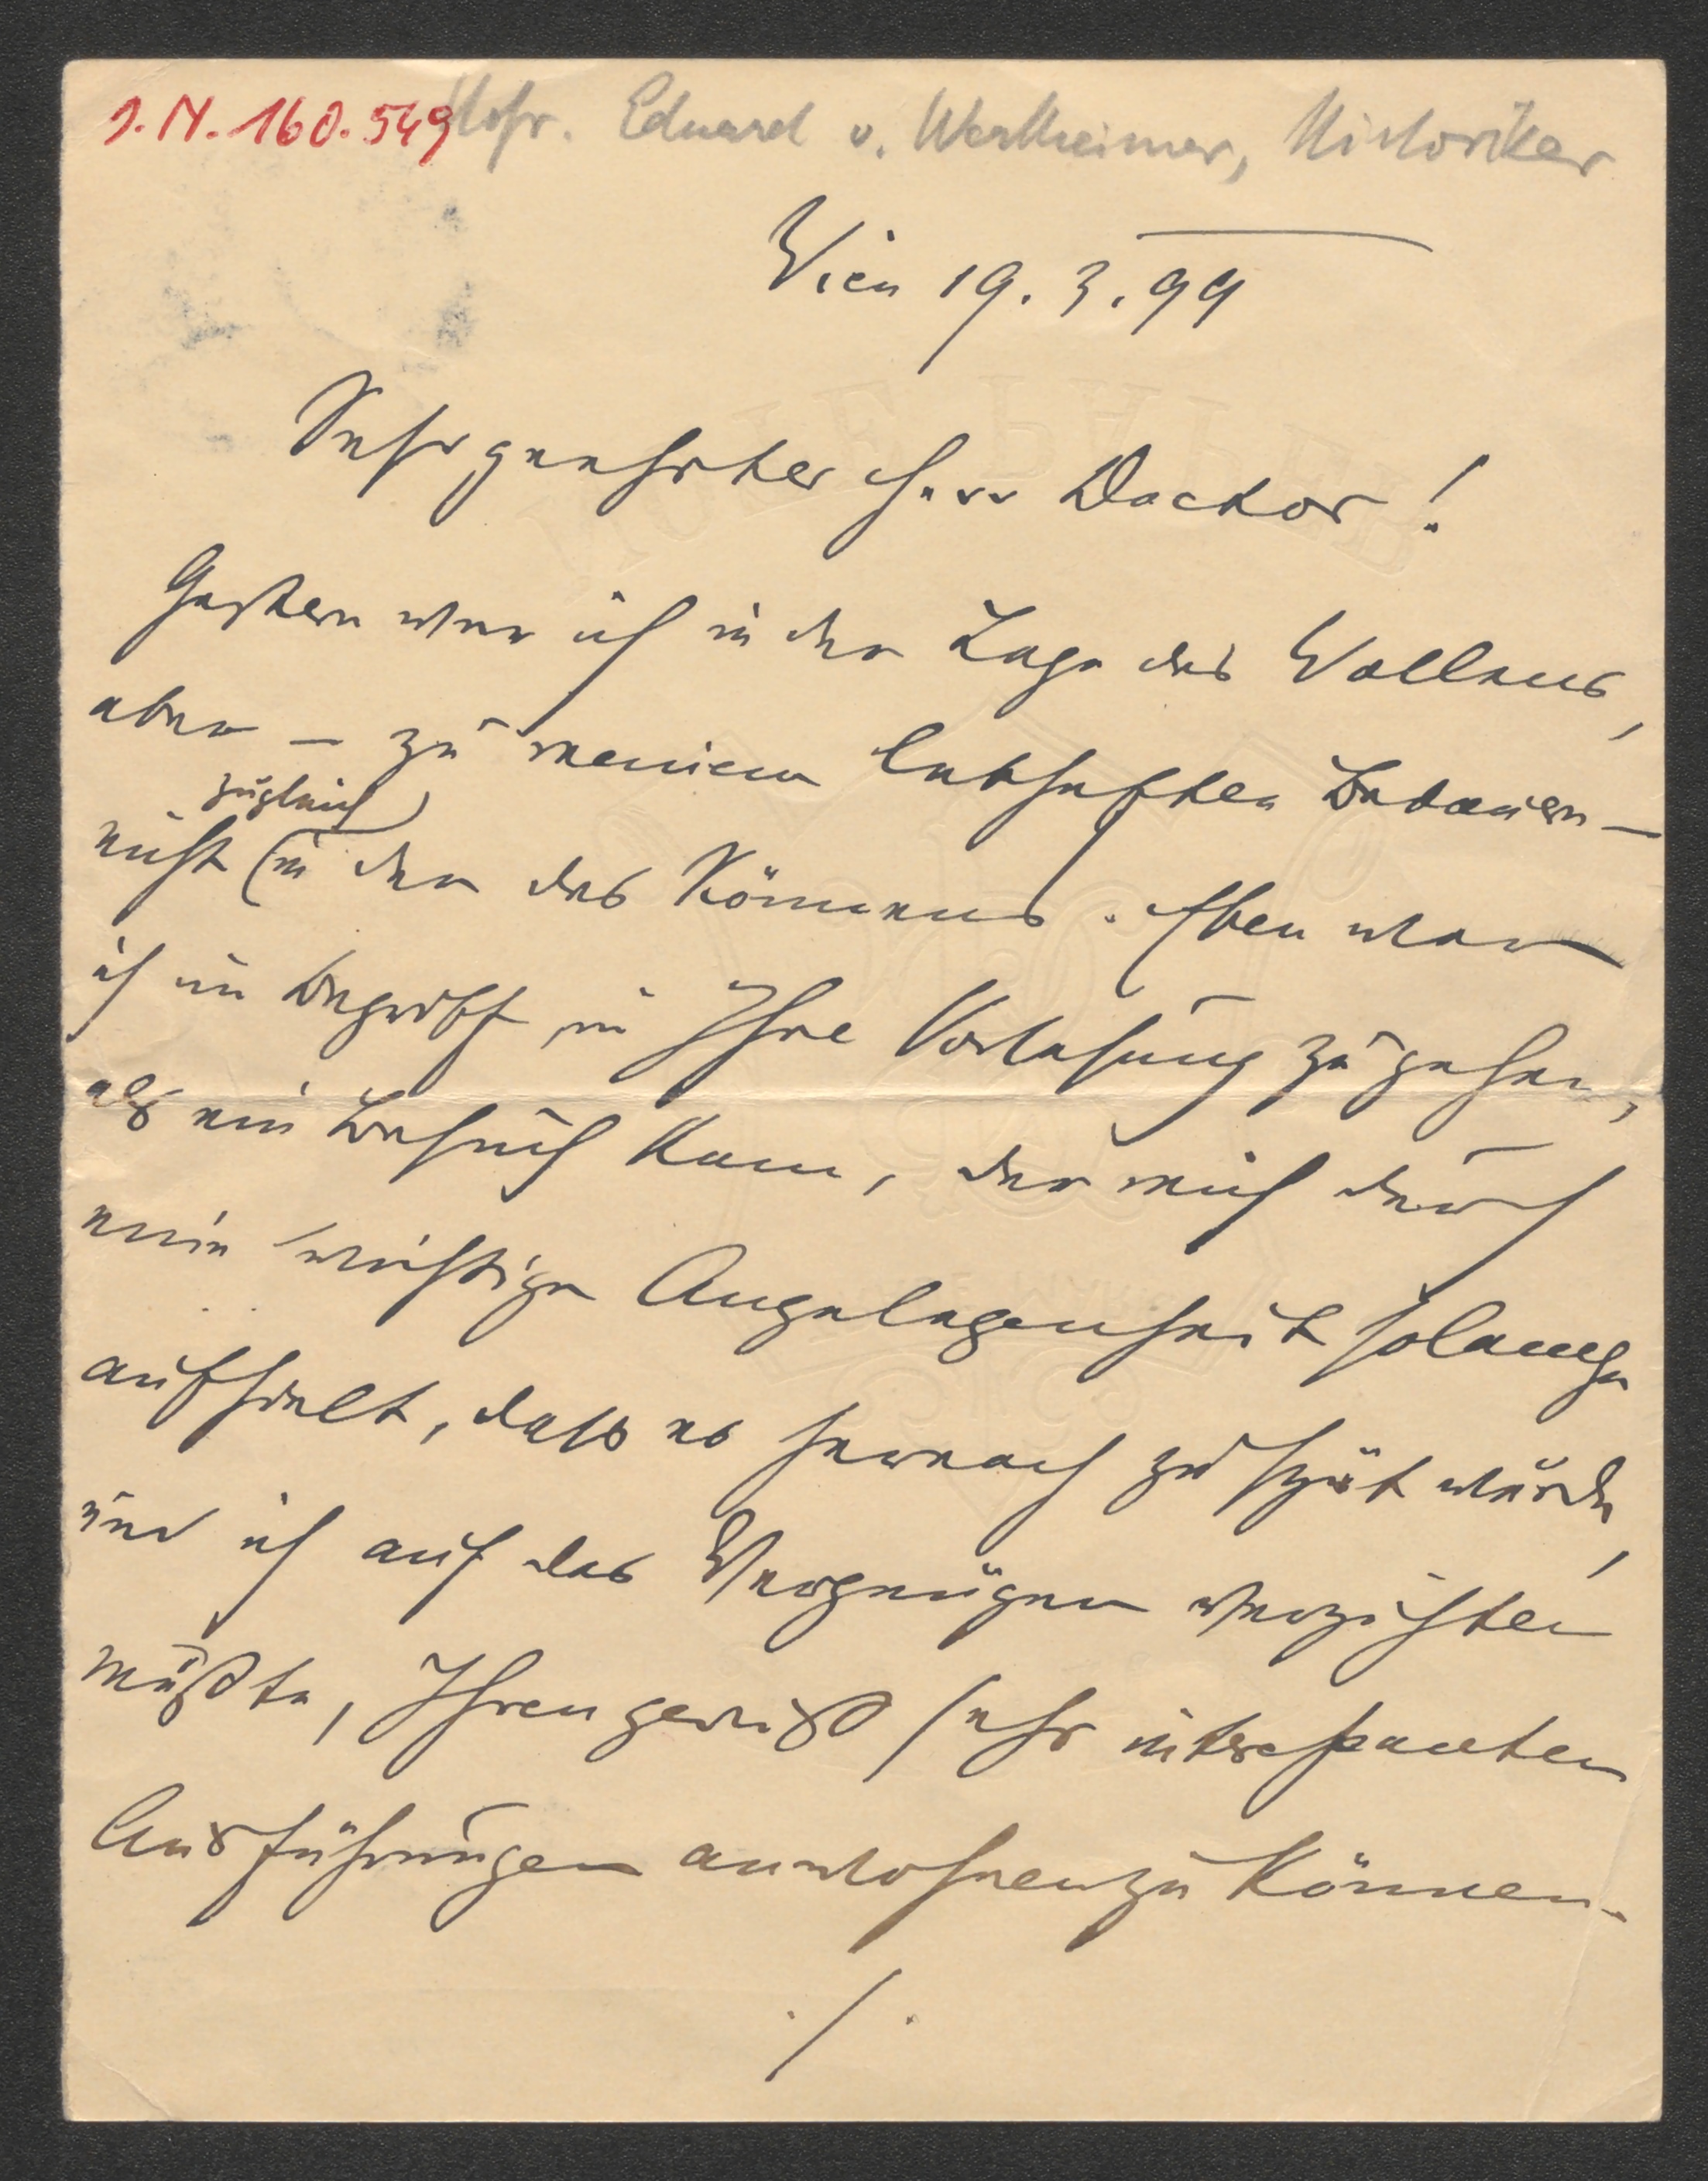 I.N. 160.549 Hofr. Eduard v. Wertheimer, Historiker
Wien 19.3.99
Sehr geehrter Herr Doctor!
Gestern war ich in der Lage des Wollens,
aber – zu meinem lebhaften Bedauern –
zugleich
nicht (in der des Könnens. Eben war
ich im Begriff, in Ihre Vorlesung zu gehen,
als ein Besuch kam, der mich durch
eine wichtige Angelegenheit solange
aufhielt, dass es hernach zu spät wurde,
und ich auf das Vergnügen verzichten
mußte, Ihren gewiß sehr interessanten
Ausführungen anwohnen zu können.
./.